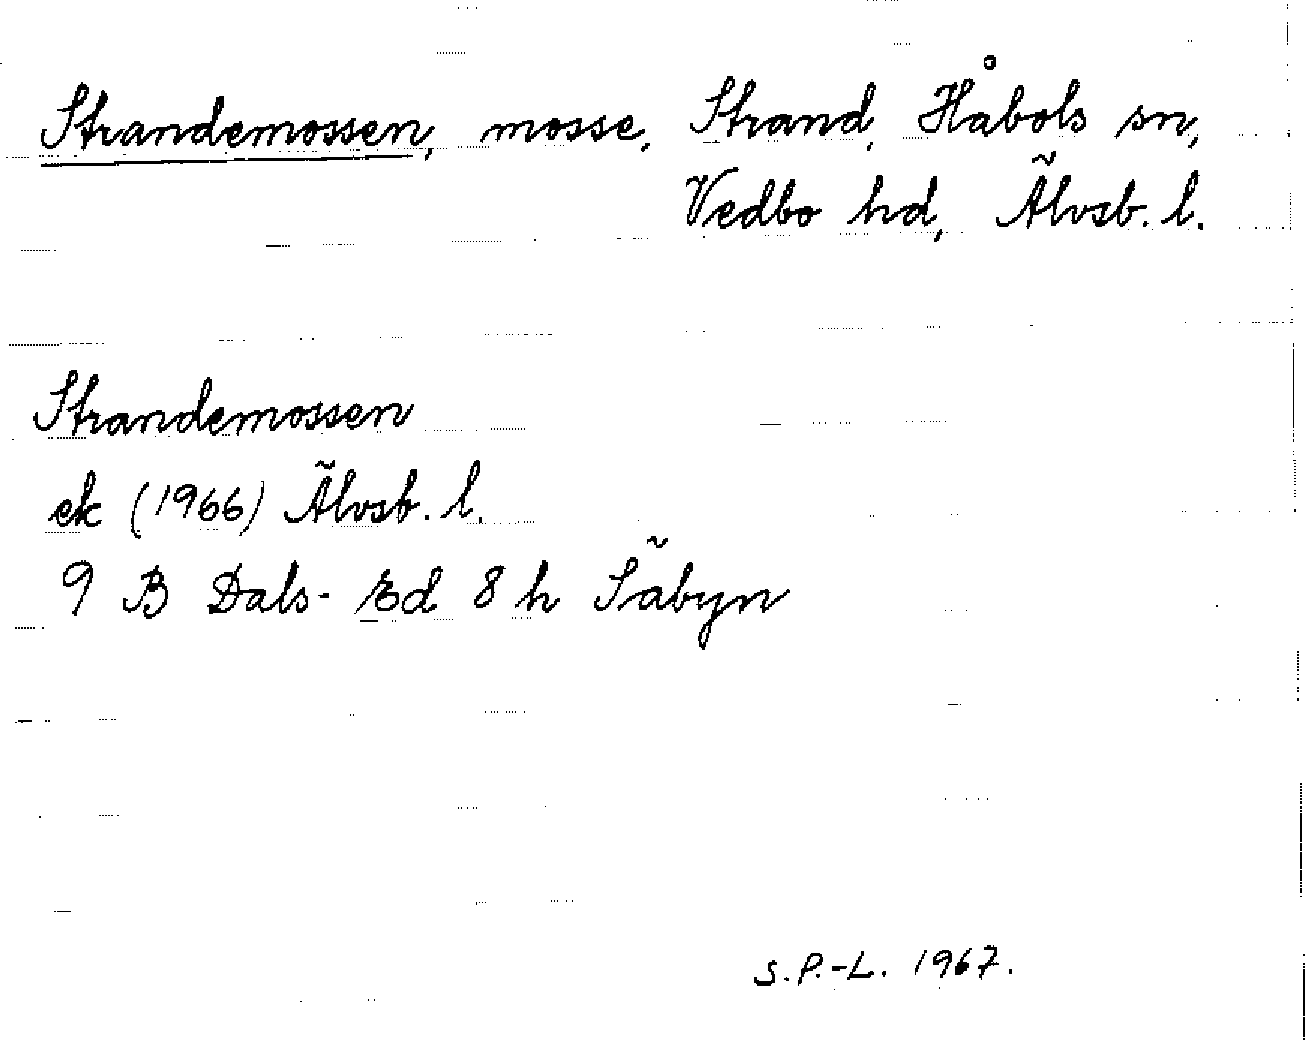 Strandemossen, mosse, Strand, Håbols sn,
Vedbo hd, Älvsb. l.
Strandemossen
ek (1966) Älvsb. l.
9 B Dals-Ed 8 h Säbyn
S.P.-L. 1967.